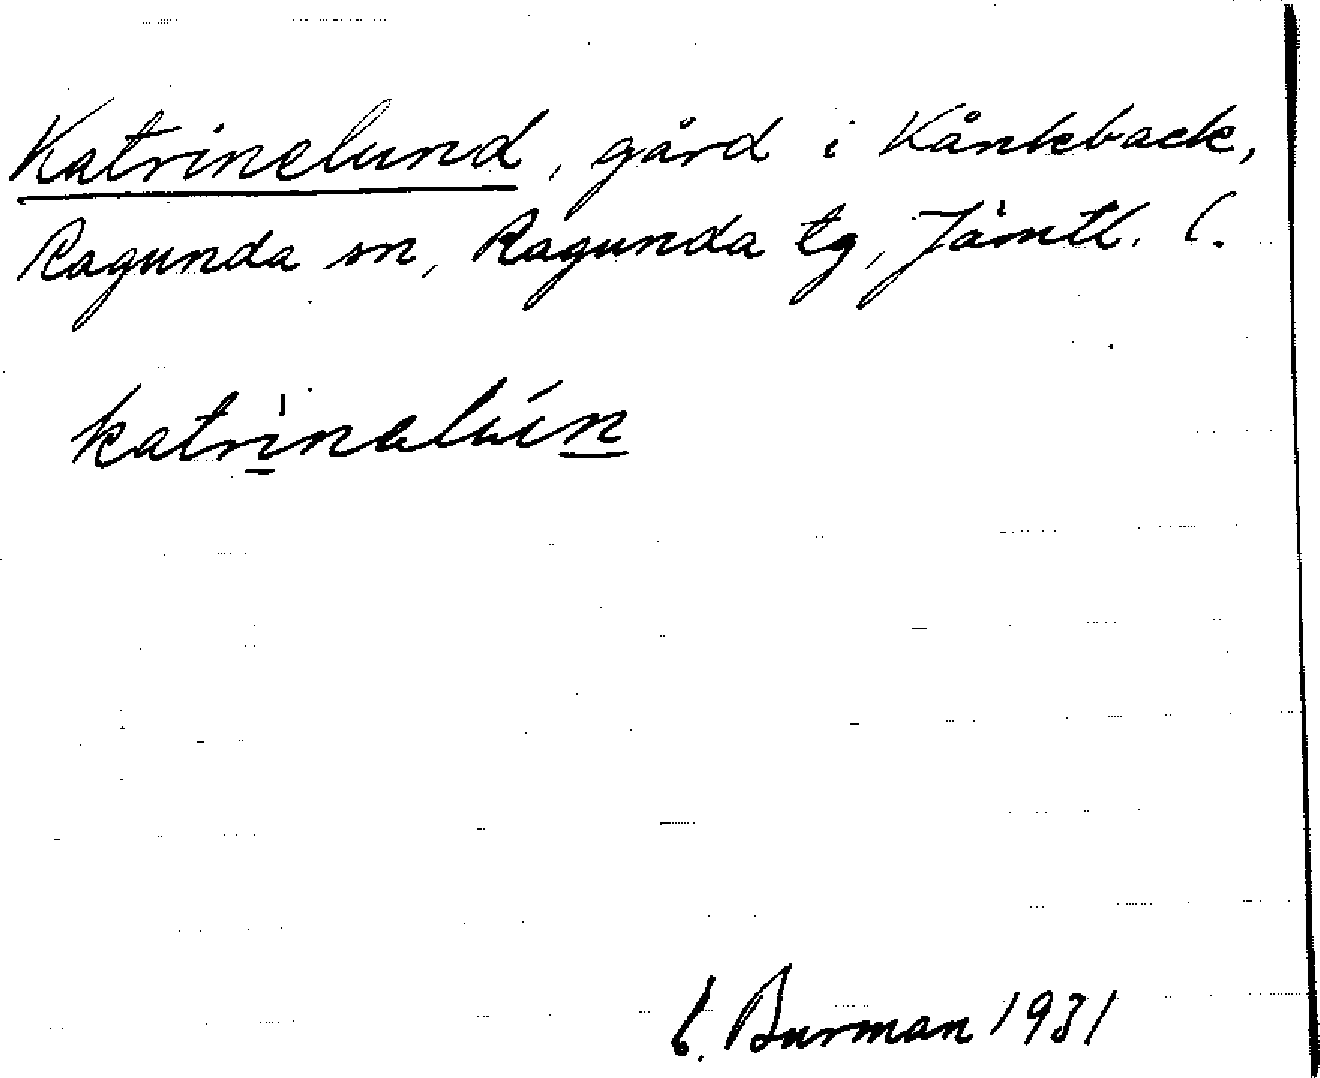 Katrinelund, gård i Kånkback,
Ragunda sn, Ragunda tg, Jämtl. l.
katrinəlún
Burman 1931